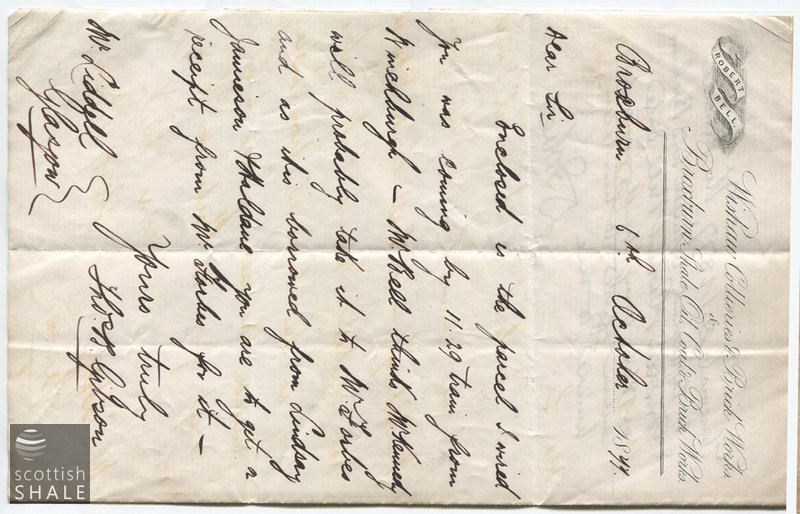 ROBERT BELL
Wishaw Collieries & Brick Works
&
Broxburn Shale Oil, Coal & Brick Works
Broxburn 6th October 1877
Dear Sir
Enclosed is the parcel I wired
you was coming by 11.29 train from
Winchburgh – Mr Bell thinks Mr Kennedy
will probably take it to Mr Forbes
and as it is borrowed from Lindsay
Jamieson & Haldane you are to get a
receipt from Mr Forbes for it –
Yours truly
Thos. B. Gibson
Mr Liddell
Glasgow
scottish
SHALE